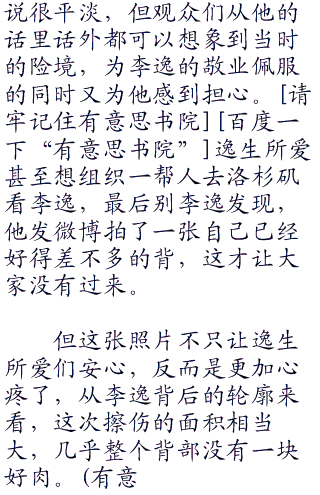 说很平淡，但观众们从他的
话里话外都可以想象到当时
的险境，为李逸的敬业佩服
的同时又为他感到担心。[请
牢记住有意思书院][百度一
下“有意思书院”]逸生所爱
甚至想组织一帮人去洛杉矶
看李逸，最后别李逸发现，
他发微博拍了一张自己已经
好得差不多的背，这才让大
家没有过来。
但这张照片不只让逸生
所爱们安心，反而是更加心
疼了，从李逸背后的轮廓来
看，这次擦伤的面积相当
大，几乎整个背部没有一块
好肉。(有意